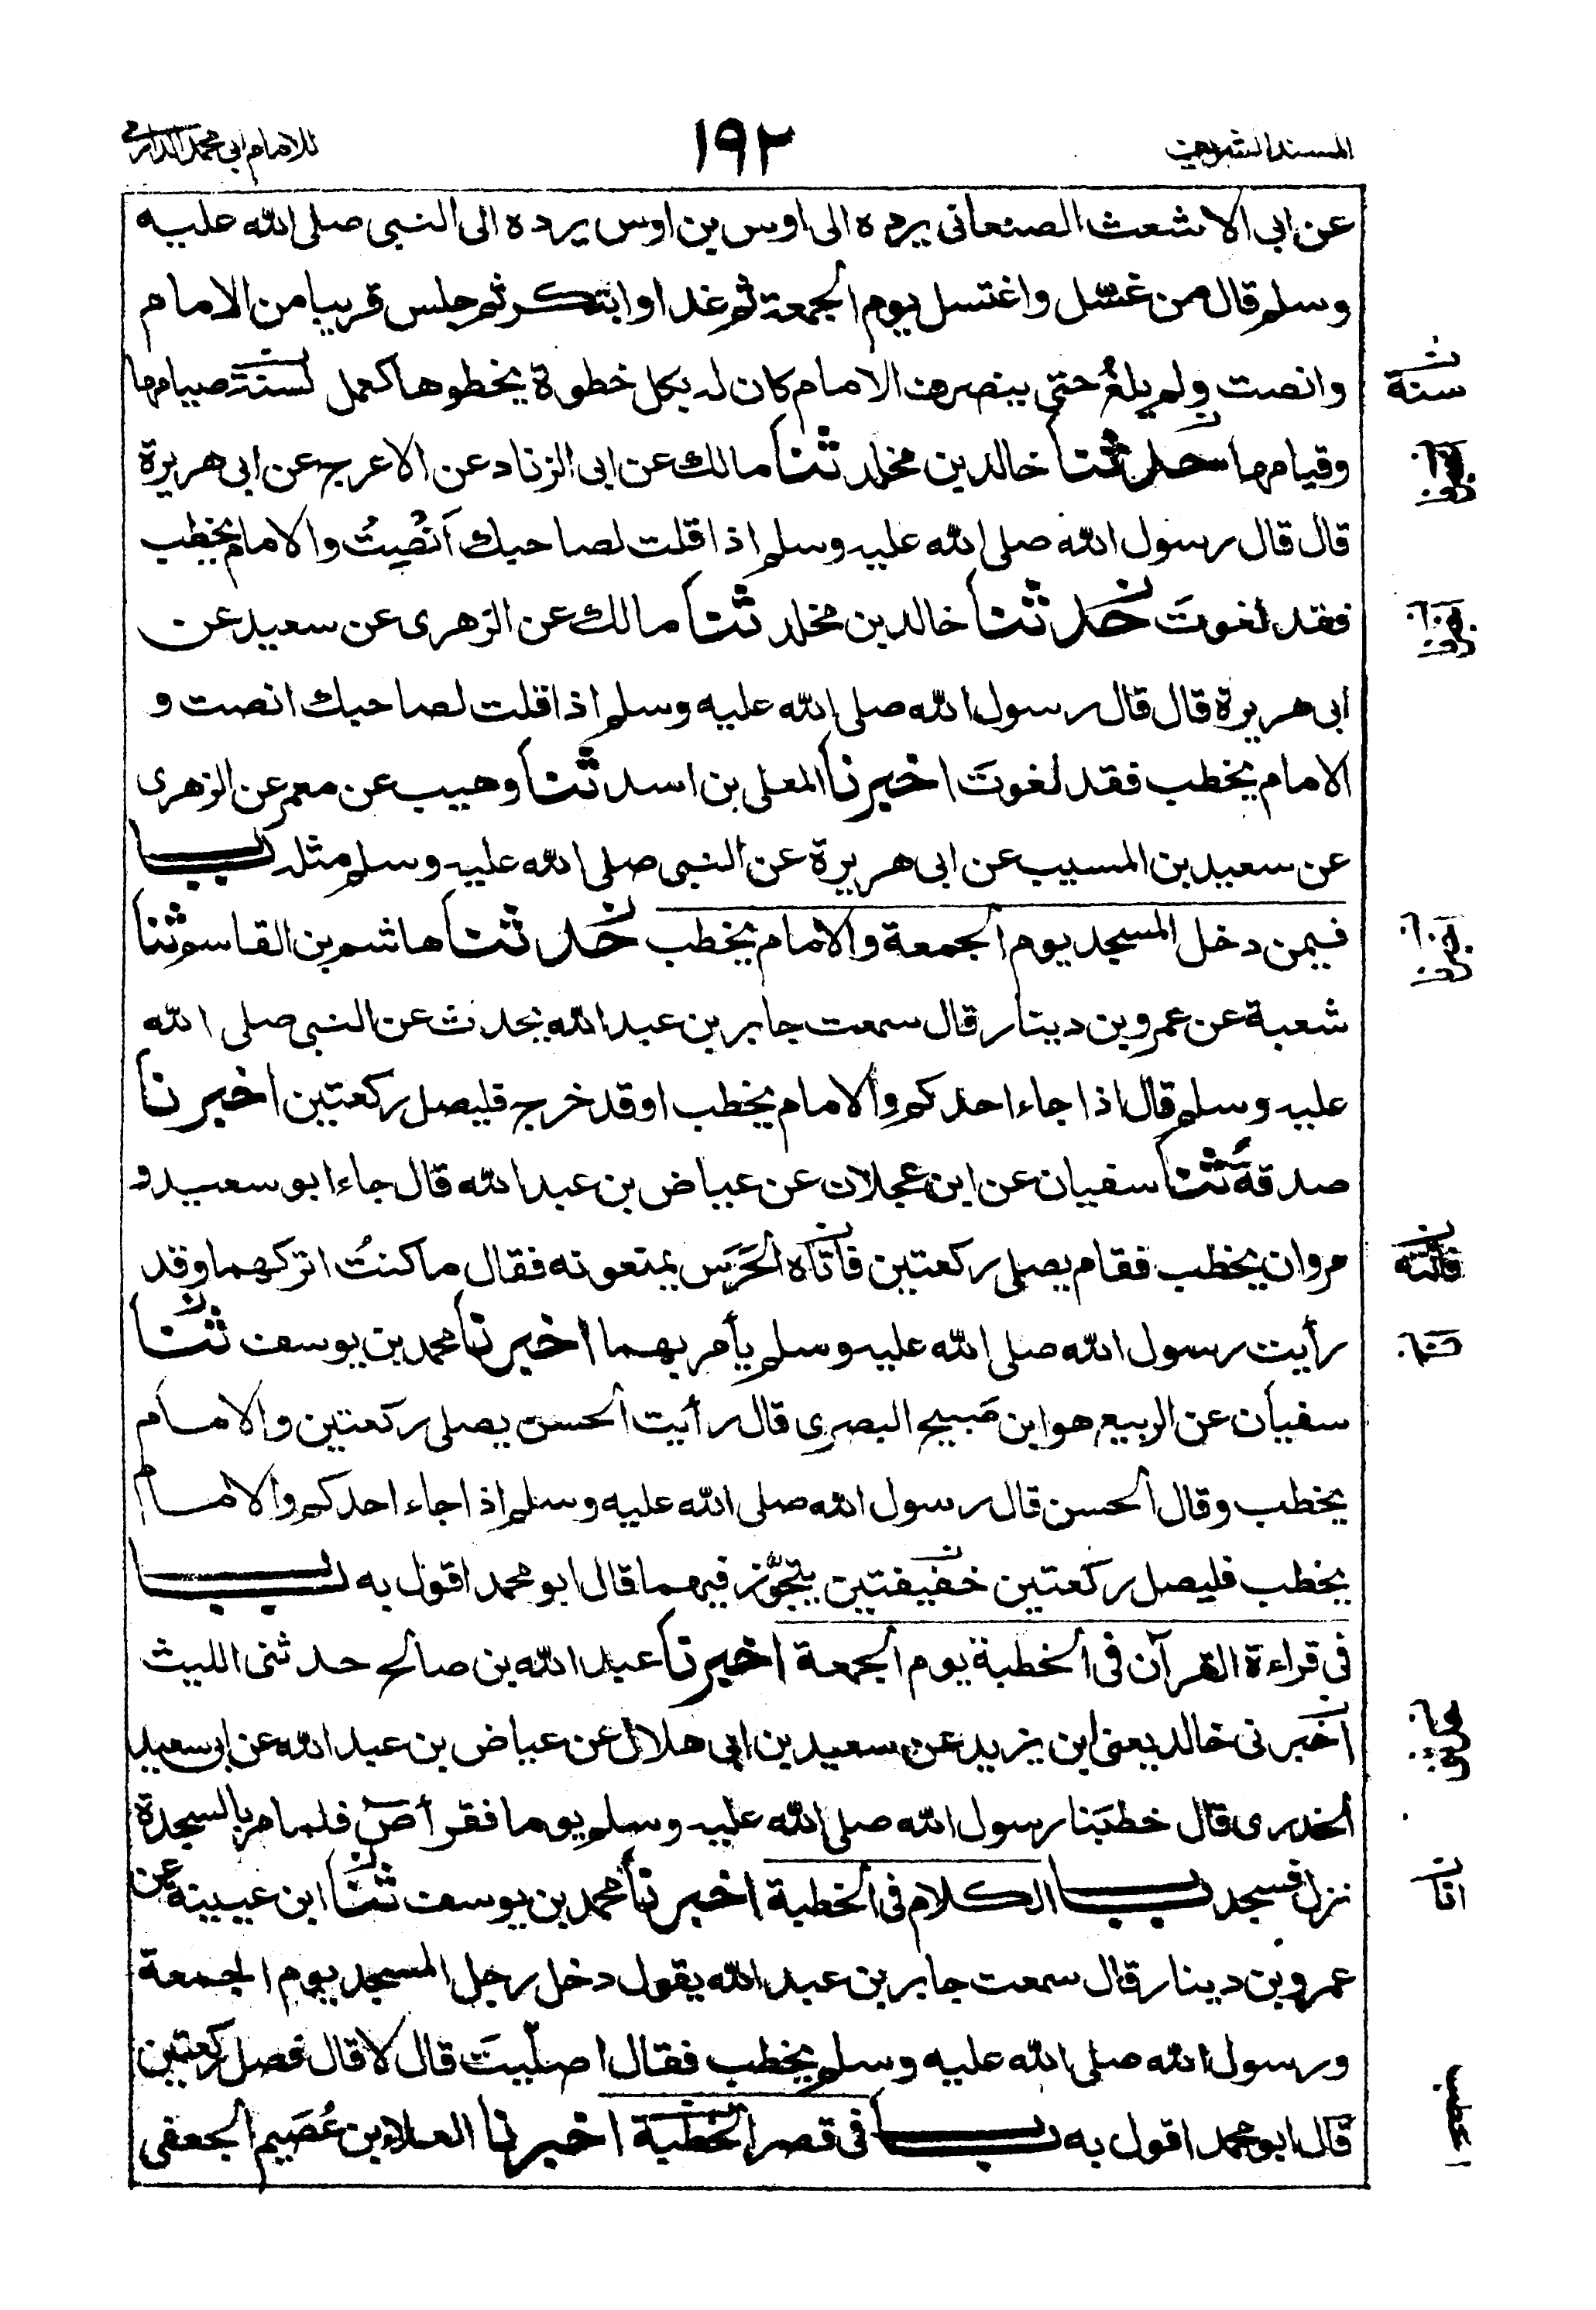 المسند الشريف
١٩٢
للامام ابي محمد الدارمي
عن ابى الاشعث الصنعانى يرده الى اوس بن اوس يرده الى النبى صلى الله عليه
وسلم قال من غسّل واغتسل يوم الجمعة ثم غدا وابتكر ثم جلس قريبا من الامام
وانصت ولم يلغُ حتى ينصرف الامام كان له بكل خطوة يخطوها كعمل لسنة صيامها
سنة
وقيامها حدثنا خالد بن مخلد ثنا مالك عن ابى الزناد عن الاعرج عن ابى هريرة
قال قال رسول الله صلى الله عليه وسلم اذا قلت لصاحبك اَنْصِتْ والامام يخطب
فقد لغوتَ حدثنا خالد بن مخلد ثنا مالك عن الزهرى عن سعيد عن
ابى هريرة قال قال رسول الله صلى الله عليه وسلم اذا قلت لصاحبك انصت و
الامام يخطب فقد لغوتَ اخبرنا المعلى بن اسد ثنا وهيب عن معمر عن الزهرى
عن سعيد بن المسيب عن ابى هريرة عن النبى صلى الله عليه وسلم مثله باب
فيمن دخل المسجد يوم الجمعة والامام يخطب حدثنا هاشم بن القاسم ثنا
شعبة عن عمرو بن دينار قال سمعت جابر بن عبد الله يحدث عن النبى صلى الله
عليه وسلم قال اذا جاء احدكم والامام يخطب او قد خرج فليصل ركعتين اخبرنا
صدقة ثنا سفيان عن ابن عجلان عن عياض بن عبد الله قال جاء ابو سعيد و
مروان يخطب فقام يصلى ركعتين فاتاه الحَرَس يمنعونه فقال ما كنتُ اتركهما وقد
فاتته
رأيت رسول الله صلى الله عليه وسلم يأمر بهما اخبرنا محمد بن يوسف ثنا
سفيان عن الربيع هو ابن صَبيح البصرى قال رأيت الحسن يصلى ركعتين والامام
يخطب وقال الحسن قال رسول الله صلى الله عليه وسلم اذا جاء احدكم والامام
يخطب فليصل ركعتين خفيفتين يتجوّز فيهما قال ابو محمد اقول به باب
فى قراءة القرآن فى الخطبة يوم الجمعة اخبرنا عبد الله بن صالح حدثنى الليث
اخبرنى خالد يعنى ابن يزيد عن سعيد بن ابى هلال عن عياض بن عبد الله عن ابى سعيد
الخدرى قال خطبَنا رسول الله صلى الله عليه وسلم يوما فقرأ صٓ فلما مر بالسجدة
نزل فسجد باب الكلام فى الخطبة اخبرنا محمد بن يوسف ثنا ابن عيينة عن
انا
عمرو بن دينار قال سمعت جابر بن عبد الله يقول دخل رجل المسجد يوم الجمعة
ورسول الله صلى الله عليه وسلم يخطب فقال اصلّيتَ قال لا قال فصل ركعتين
قال ابو محمد اقول به باب فى قصر الخطبة اخبرنا العلاء بن عُصَيم الجعفى